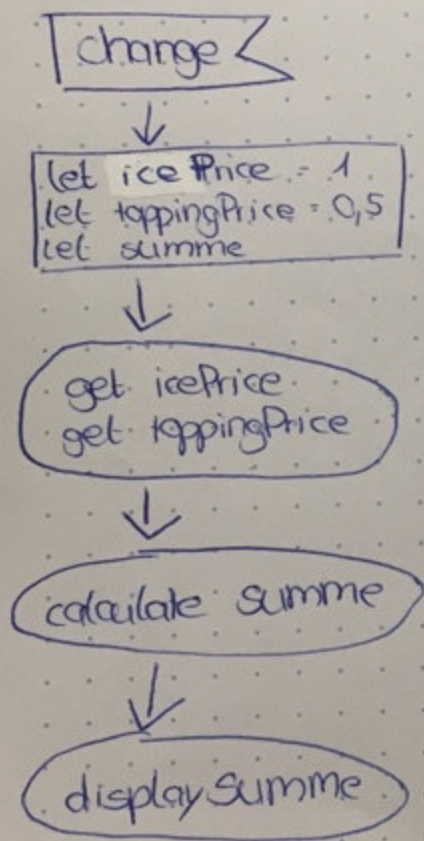 change
let icePrice = 1
let toppingPrice = 0,5
let summe
get icePrice
get toppingPrice
calculate summe
display summe